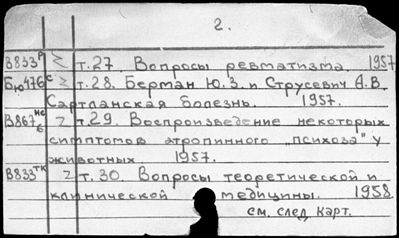 2.
В833 Σ т.27 Вопросы ревматизма. 1957
Бю476 с Σ т.28. Берман Ю.З. и Струсевич А.В.
Сартланская болезнь. 1957.
В867 Σ т.29. Воспроизведение некоторых
симптомов атропинного „психоза" у
животных 1957.
В833 тк Σ т.30. Вопросы теоретической и
клинической медицины. 1958.
см. след. карт.